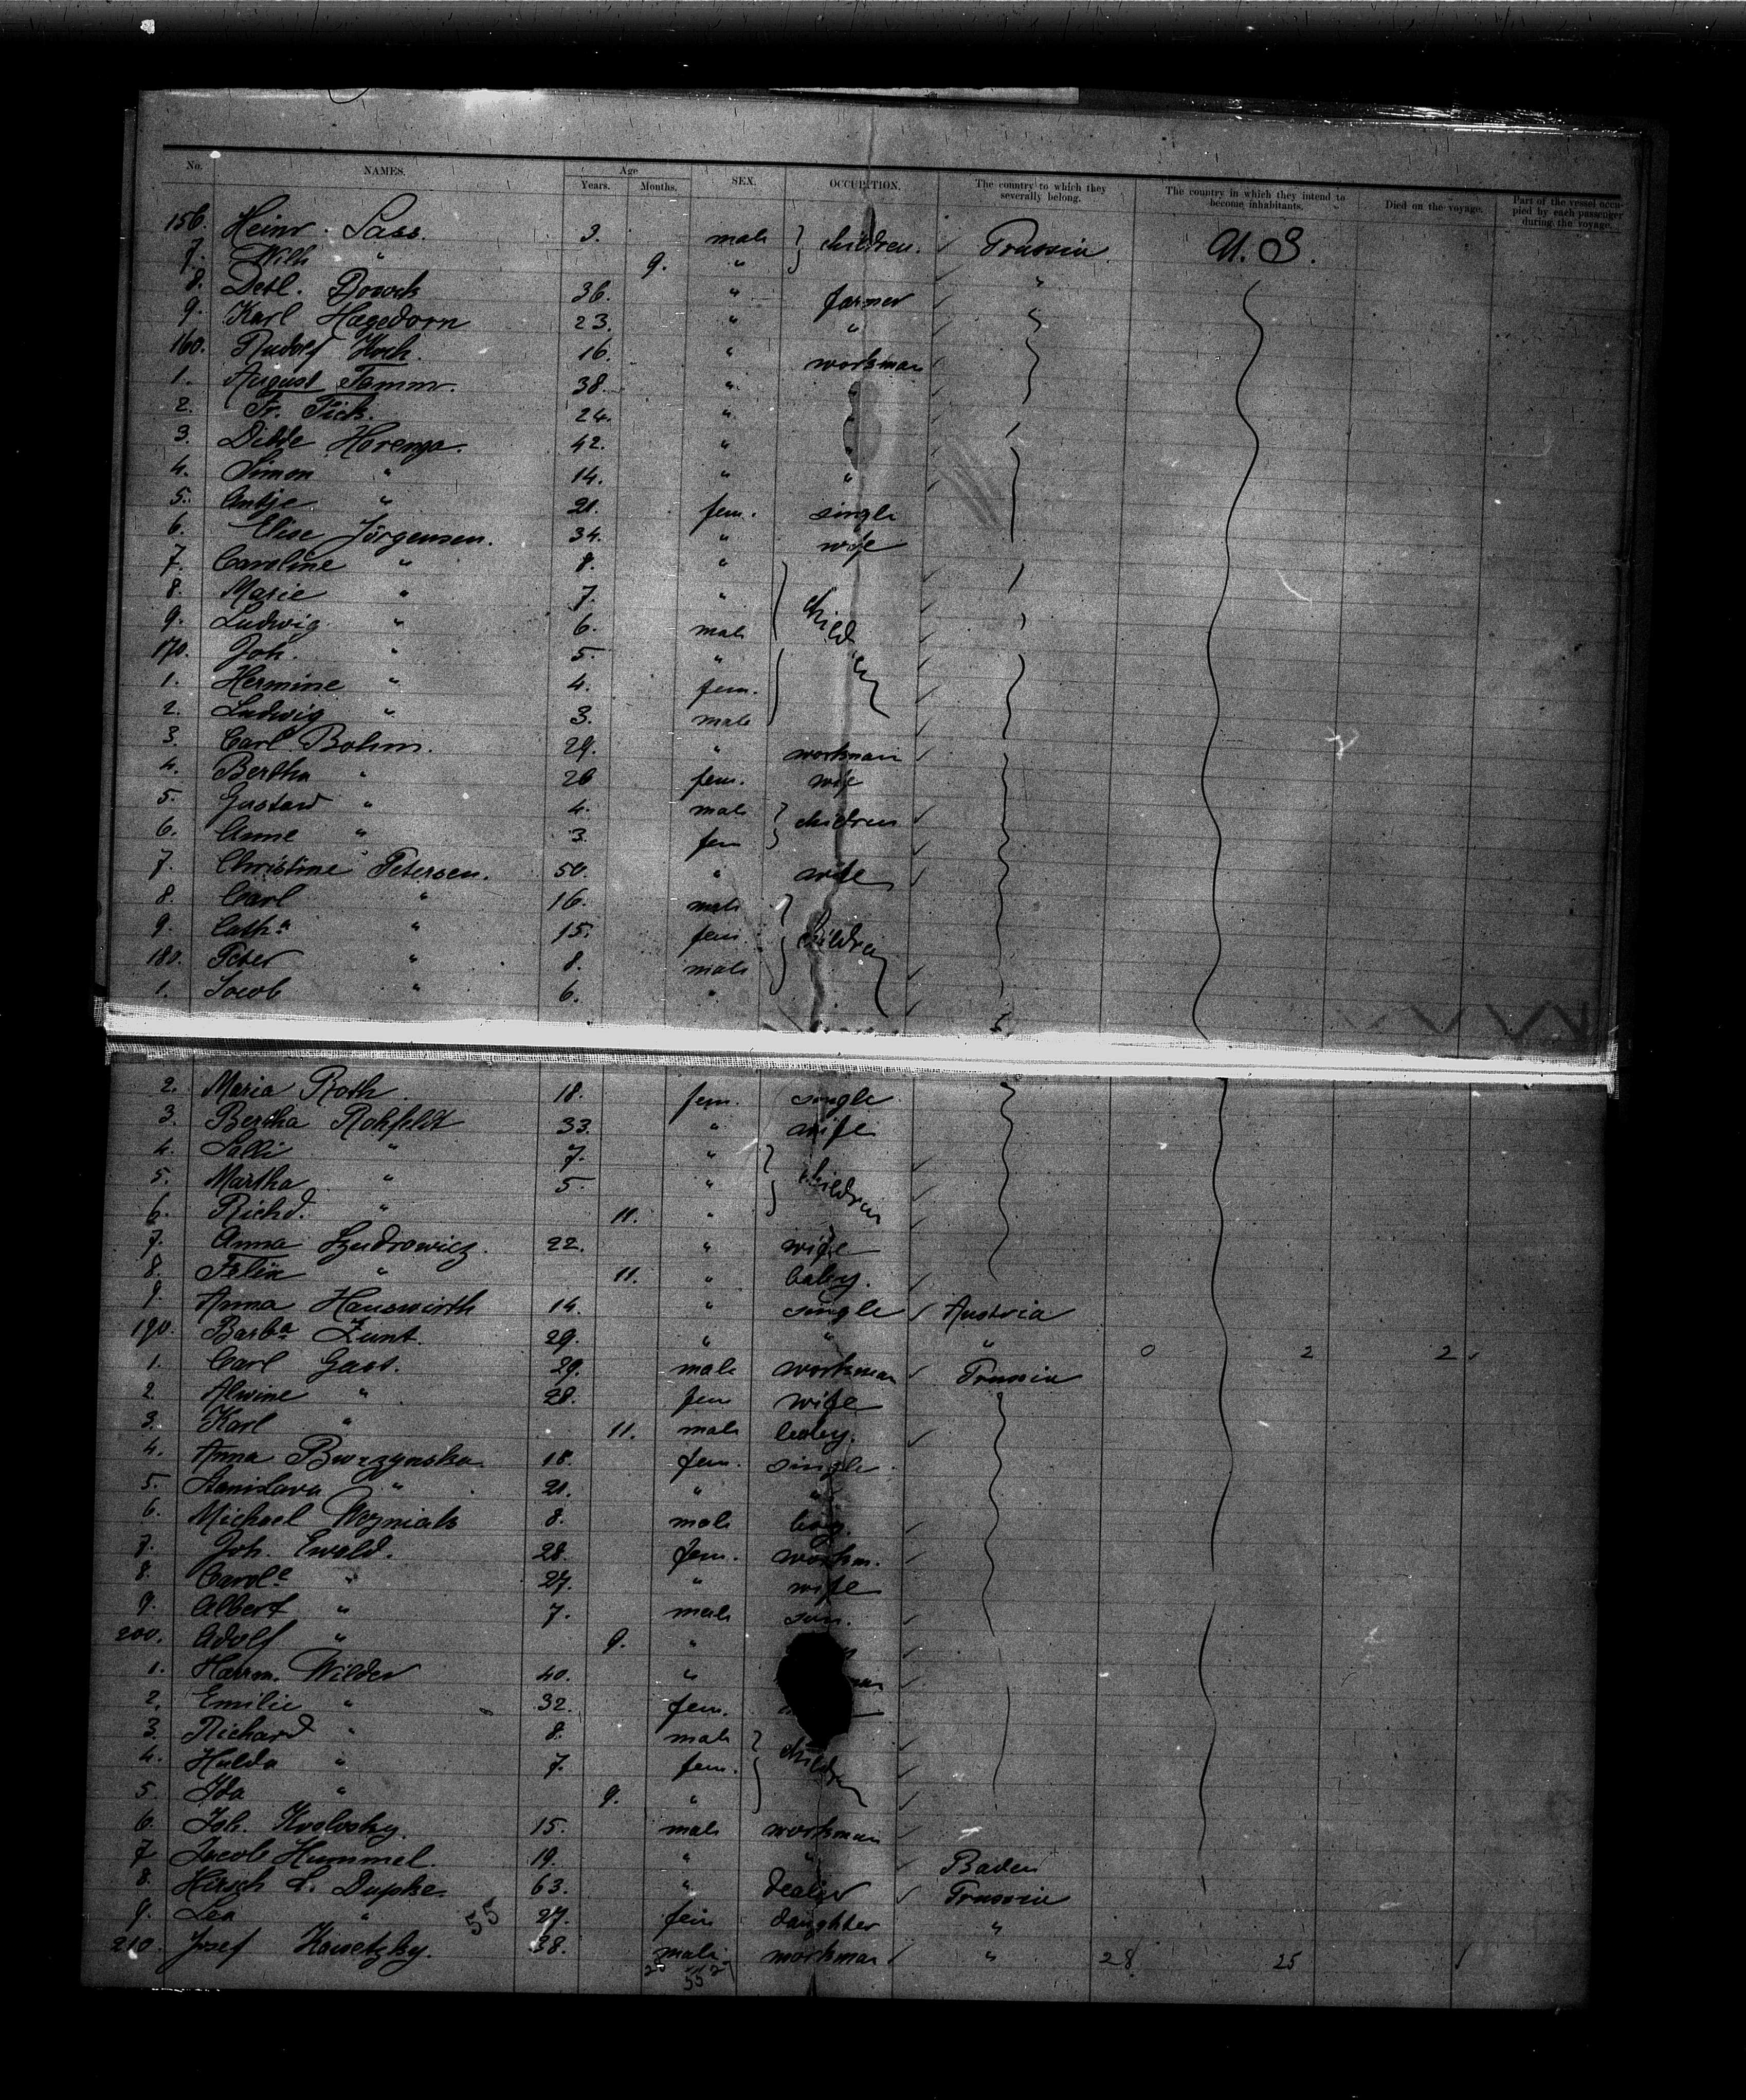 No. NAMES. Age Years. Months. SEX. OCCUPATION. The country to which they severally belong. The country in which they intend to become inhabitants. Died on the voyage. Part of the vessel occupied by each passenger during the voyage.
156. Heinr. Sass. 3. male children. Prussia. U. S.
7. Wilh " 9. " "
8. Detl. 36. " farmer
9. Karl Hagedorn 23. " "
160. Rudolf Koch. 16. " workman
1. August Tamm. 38. "
2. Fr. Fick. 24. "
3. Harenga. 42. "
4. Simon " 14. " "
5. Antje " 21. fem. single
6. Elise Jörgensen. 34. " wife
7. Caroline " 8. "
8. Marie " 7. " children
9. Ludwig " 6. male
170. Joh. " 5. "
1. Hermine " 4. fem.
2. Ludwig " 3. male
3. Carl Bohm. 29. " workman
4. Bertha " 26 fem. wife
5. Gustav " 4. male children
6. Anne " 3. fem
7. Christine Petersen. 50. " wife
8. Carl " 16. male
9. Cath.a " 15. fem. children
180. Peter " 8. male
1. Jacob " 6. "
2. Maria Roth. 18. fem. single
3. Bertha Rohfeldt 33. " wife
4. Salli " 7. "
5. Martha " 5. " children
6. Richd. " 11. "
7. Anna 22. " wife
8. Felix " 11. " baby.
9. Anna Hauswirth 14. " single Austria
190. Barba Zunt. 29. " " " 0 2 2
1. Carl Gast. 29. male workman Prussia
2. Alwine " 28. fem wife
3. Karl " 11. male baby.
4. Anna Burzynska. 18. fem. single
5. Stanislava " 21. " "
6. Michael Wozniak 8. male boy.
7. Joh. Ewald. 28. fem. workm.
8. Carole " 27. " wife
9. Albert " 7. male son.
200. Adolf " 9. "
1. Herrm. Wilder 40. "
2. Emilie " 32. fem.
3. Richard " 8. male children
4. Hulda " 7. fem.
5. Ida " 9. "
6. Joh. 15. male workman
7 Jacob Hummel. 19. " " Baden
8. Hirsch L. Dupke. 63. " dealer Prussia
9. Lea " 55 27. fem daughter "
210. Josef 38. male workman " 28 25
55